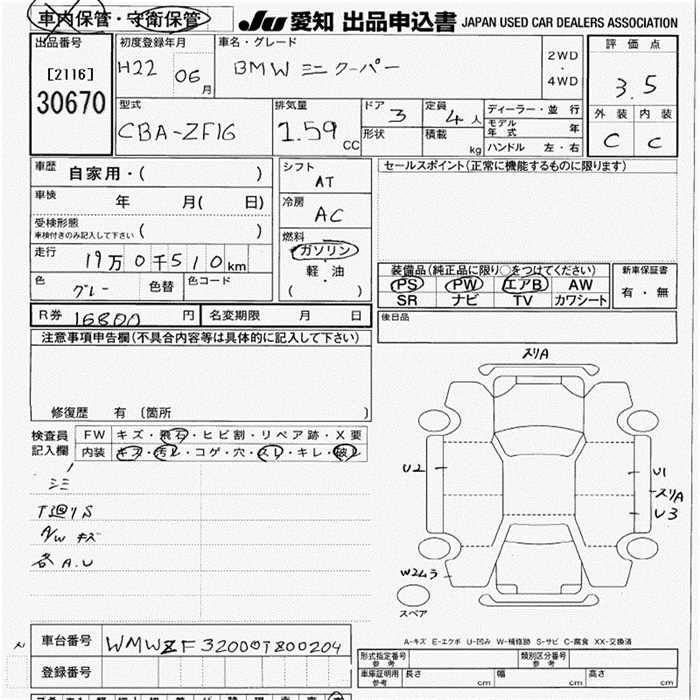 車内保管・守衛保管 JU 愛知 出品申込書 JAPAN USED CAR DEALERS ASSOCIATION
出品番号 初度登録年月 車名・グレード 評価点
[2116] H22 06月 BMW ミニ クーパー 2WD・4WD 3.5
30670
型式 排気量 ドア 定員 ディーラー・並行 外装 内装
CBA-ZF16 1.59 CC 3 4人 モデル年式 年 C C
形状 積載 kg ハンドル 左・右
車歴 自家用・( ) シフト セールスポイント(正常に機能するものに限ります)
AT
車検 年 月( 日) 冷房
AC
受検形態 ( )
車検付きのみ記入して下さい
燃料
走行 19万0千510km ガソリン
軽・油
( )
色 グレー 色替 色コード
装備品(純正品に限り○をつけてください) 新車保証書
PS PW エアB AW 有・無
SR ナビ TV カワシート
R券 16800 円 名変期限 月 日 後日品
注意事項申告欄(不具合内容等は具体的に記入して下さい)
修復歴 有 (箇所 )
検査員記入欄 FW キズ・飛石・ヒビ割・リペア跡・X要
内装 キズ・汚レ・コゲ・穴・スレ・キレ・破レ
スリA
U2 U1
スリA
U3
A/W キズ
各A.U
W2ムラ
スペア
A-キズ E-エクボ U-凹み W-補修跡 S-サビ C-腐食 XX-交換済
車台番号 WMWZF32000T800204
登録番号
形式指定番号 参考 類別区分番号 参考
車庫証明用 参考 長さ cm 幅 cm 高さ cm